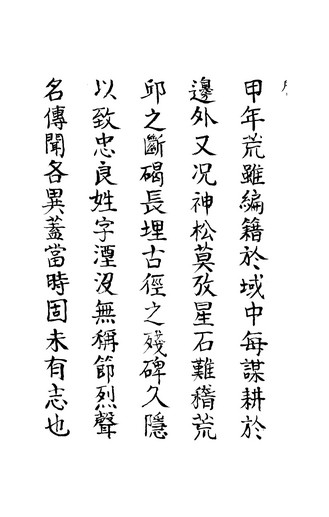 甲年荒雖編籍於域中每謀耕於
邊外又况神松莫攷星石難稽荒
邱之斷碣長埋古徑之殘碑久隱
以致忠良姓字湮沒無稱節烈聲
名傳聞各異蓋當時固未有志也